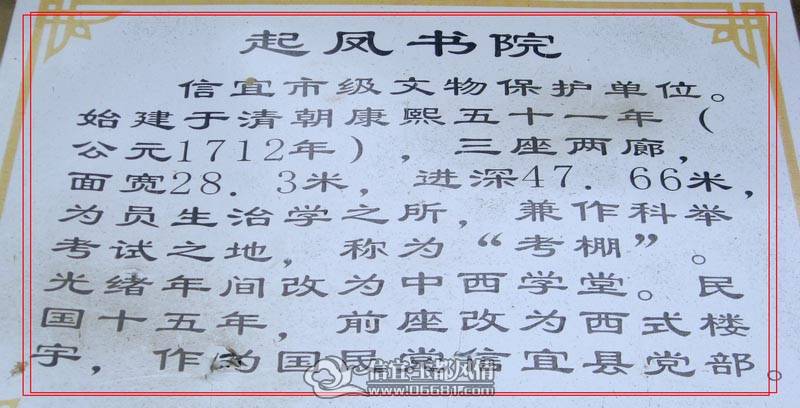 起凤书院
信宜市级文物保护单位。
始建于清朝康熙五十一年（
公元1712年），三座两廊，
面宽28．3米，进深47．66米，
为员生治学之所，兼作科举
考试之地，称为“考棚”。
光绪年间改为中西学堂。民
国十五年，前座改为西式楼
宇，作为国民党信宜县党部。
信宜玉都风情
www.06681.com